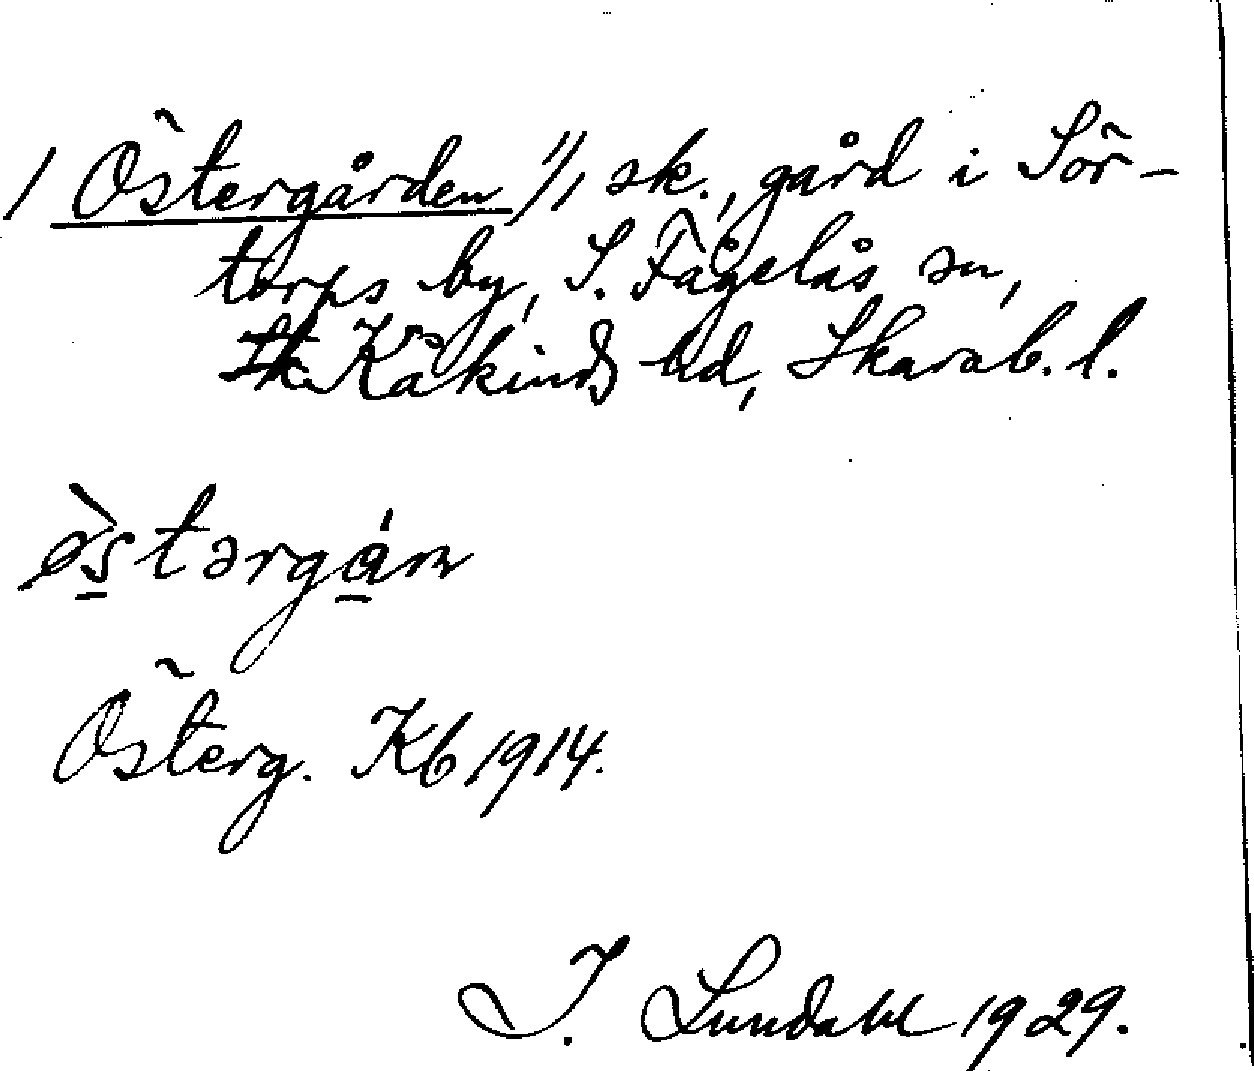 / Östergården 1/1 sk., gård i Sör-
torps by, S. Fågelås sn,
Kåkinds hd, Skarab. l.
östərgån
Österg. Kb 1914.
I. Lundahl 1929.